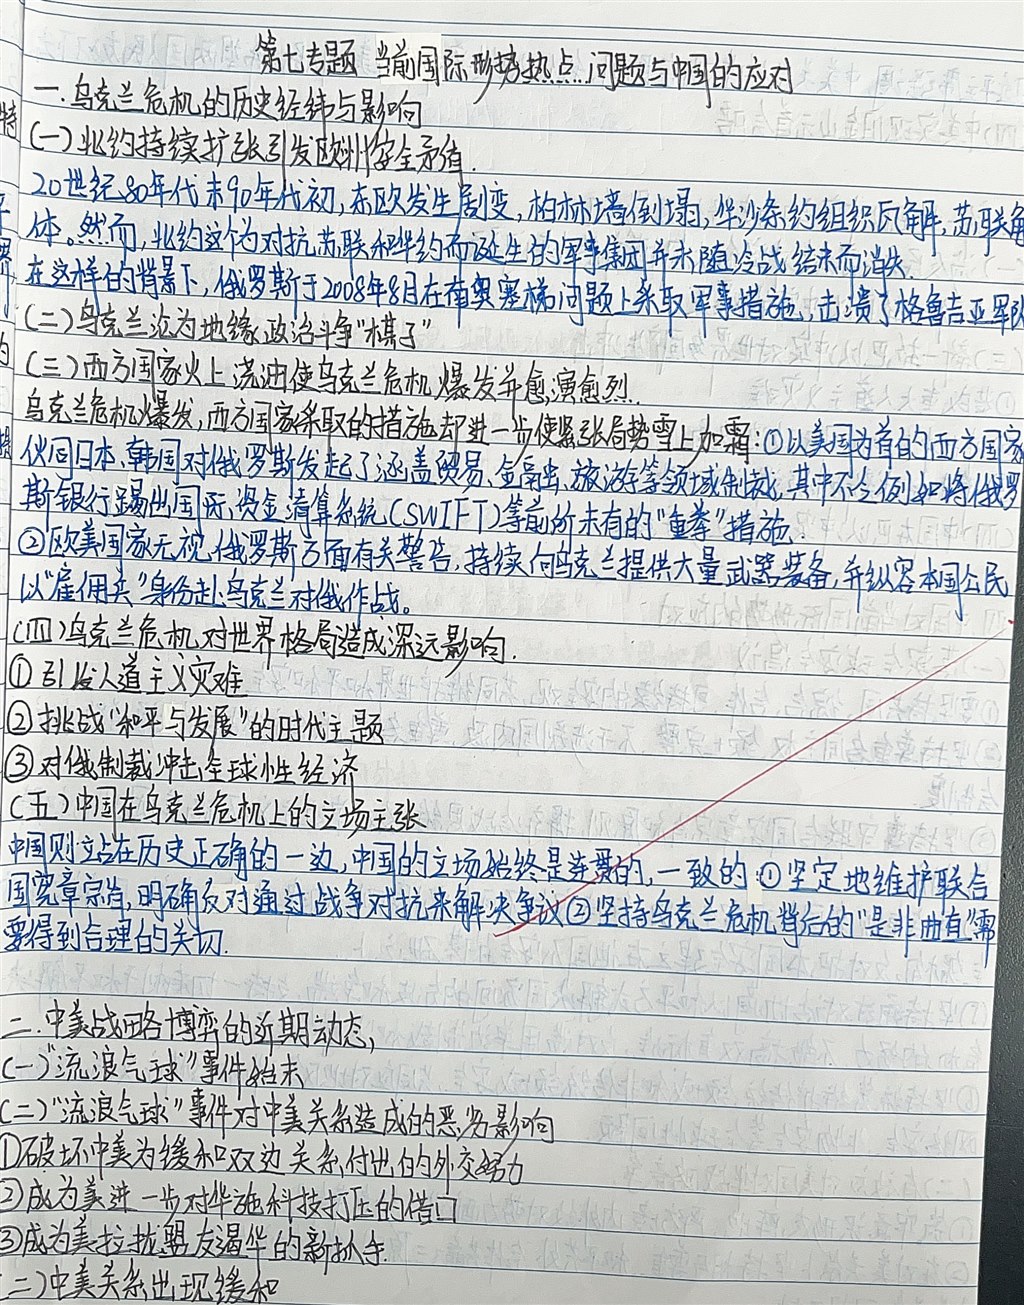 第七专题 当前国际形势热点问题与中国的应对
一.乌克兰危机的历史经纬与影响
(一)北约持续扩张引发欧洲安全矛盾.
20世纪80年代末90年代初,东欧发生剧变,柏林墙倒塌,华沙条约组织瓦解,苏联解
体。然而,北约这个为对抗苏联和华约而诞生的军事集团并未随冷战结束而消失.
在这样的背景下,俄罗斯于2008年8月在南奥塞梯问题上采取军事措施,击溃了格鲁吉亚军队
(二)乌克兰沦为地缘政治斗争"棋子"
(三)西方国家火上浇油使乌克兰危机爆发并愈演愈烈.
乌克兰危机爆发,西方国家采取的措施却进一步使紧张局势雪上加霜:①以美国为首的西方国家
伙同日本、韩国对俄罗斯发起了涵盖贸易、金融、旅游等领域制裁,其中不乏例如将俄罗
斯银行踢出国际资金清算系统(SWIFT)等前所未有的"重拳"措施.
②欧美国家无视俄罗斯方面有关警告,持续向乌克兰提供大量武器装备,并纵容本国公民
以"雇佣兵"身份赴乌克兰对俄作战。
(四)乌克兰危机对世界格局造成深远影响.
①引发人道主义灾难
②挑战"和平与发展"的时代主题
③对俄制裁冲击全球性经济
(五)中国在乌克兰危机上的立场主张
中国则站在历史正确的一边,中国的立场始终是连贯的,一致的:①坚定地维护联合
国宪章宗旨,明确反对通过战争对抗来解决争议②坚持乌克兰危机背后的"是非曲直"需
要得到合理的关切.
二.中美战略博弈的近期动态,
(一)"流浪气球"事件始末
(二)"流浪气球"事件对中美关系造成的恶劣影响
①破坏中美为缓和双边关系付出的外交努力
②成为美进一步对华施科技打压的借口
③成为美拉拢盟友遏华的新抓手.
(三)中美关系出现缓和